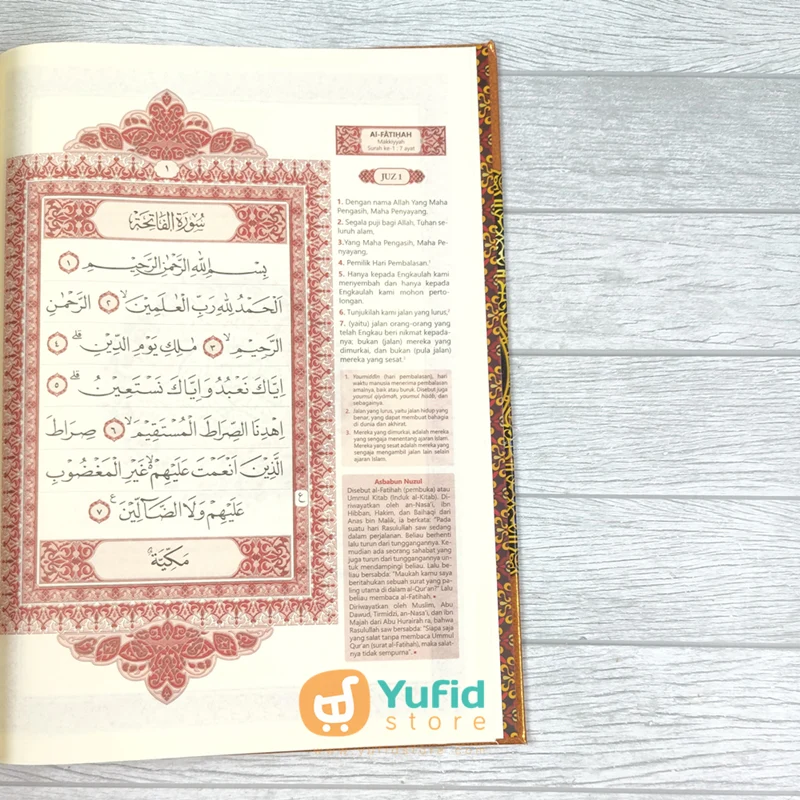 ١
سُورَةُ الْفَاتِحَةِ
بِسْمِ اللّٰهِ الرَّحْمٰنِ الرَّحِيْمِ ١
اَلْحَمْدُ لِلّٰهِ رَبِّ الْعٰلَمِيْنَۙ ٢ الرَّحْمٰنِ
الرَّحِيْمِۙ ٣ مٰلِكِ يَوْمِ الدِّيْنِۗ ٤
اِيَّاكَ نَعْبُدُ وَاِيَّاكَ نَسْتَعِيْنُۗ ٥
اِهْدِنَا الصِّرَاطَ الْمُسْتَقِيْمَۙ ٦ صِرَاطَ
الَّذِيْنَ اَنْعَمْتَ عَلَيْهِمْ ەۙ غَيْرِ الْمَغْضُوْبِ
عَلَيْهِمْ وَلَا الضَّاۤلِّيْنَࣖ ٧
ع
مَكِّيَّةٌ
AL-FĀTIḤAH
Makkiyyah
Surah ke-1 : 7 ayat
JUZ 1
1. Dengan nama Allah Yang Maha
Pengasih, Maha Penyayang.
2. Segala puji bagi Allah, Tuhan se-
luruh alam,
3.Yang Maha Pengasih, Maha Pe-
nyayang,
4. Pemilik Hari Pembalasan.¹
5. Hanya kepada Engkaulah kami
menyembah dan hanya kepada
Engkaulah kami mohon perto-
longan.
6. Tunjukilah kami jalan yang lurus,²
7. (yaitu) jalan orang-orang yang
telah Engkau beri nikmat kepada-
nya; bukan (jalan) mereka yang
dimurkai, dan bukan (pula jalan)
mereka yang sesat.³
1. Yaumiddīn (hari pembalasan), hari
waktu manusia menerima pembalasan
amalnya, baik atau buruk. Disebut juga
yaumul qiyāmah, yaumul ḥisāb, dan
sebagainya.
2. Jalan yang lurus, yaitu jalan hidup yang
benar, yang dapat membuat bahagia
di dunia dan akhirat.
3. Mereka yang dimurkai, adalah mereka
yang sengaja menentang ajaran Islam.
Mereka yang sesat adalah mereka yang
sengaja mengambil jalan lain selain
ajaran Islam.
Asbabun Nuzul
Disebut al-Fatihah (pembuka) atau
Ummul Kitab (Induk al-Kitab). Di-
riwayatkan oleh an-Nasa'i, ibn
Hibban, Hakim, dan Baihaqi dari
Anas bin Malik, ia berkata: "Pada
suatu hari Rasulullah saw sedang
dalam perjalanan. Beliau berhenti
lalu turun dari tunggangannya. Ke-
mudian ada seorang sahabat yang
juga turun dari tunggangannya un-
tuk mendampingi beliau. Lalu be-
liau bersabda: "Maukah kamu saya
beritahukan sebuah surat yang pa-
ling utama di dalam al-Qur'an?" Lalu
beliau membaca al-Fatihah.
Diriwayatkan oleh Muslim, Abu
Dawud, Tirmidzi, an-Nasa'i, dan ibn
Majah dari Abu Hurairah ra, bahwa
Rasulullah saw bersabda: "Siapa saja
yang salat tanpa membaca Ummul
Qur'an (surat al-Fatihah), maka salat-
nya tidak sempurna".
Yufid
store